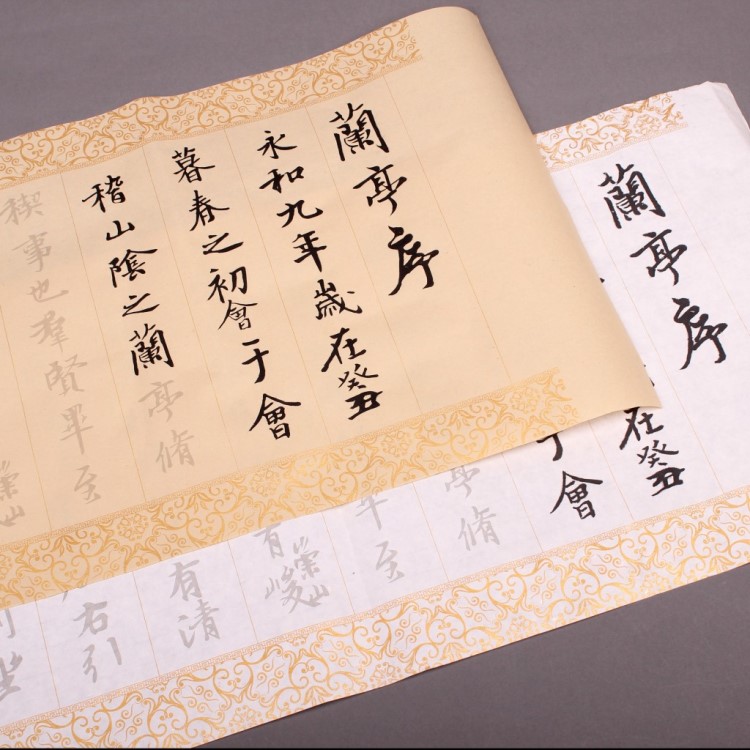 蘭亭序
永和九年歲在癸丑
暮春之初會于會
稽山陰之蘭亭脩
禊事也羣賢畢至
崇山
蘭亭序
在癸丑
于會
亭脩
畢至
有崇山峻
有清
右引
列坐